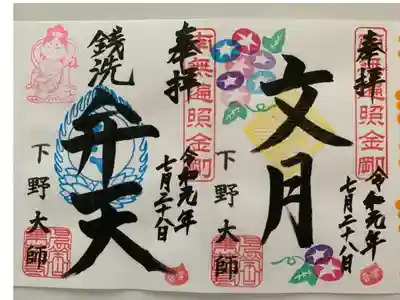 奉拝
南無遍照金剛
文月
令和元年
七月二十八日
下野大師
奉拝
南無遍照金剛
銭洗
弁天
令和元年
七月二十八日
下野大師